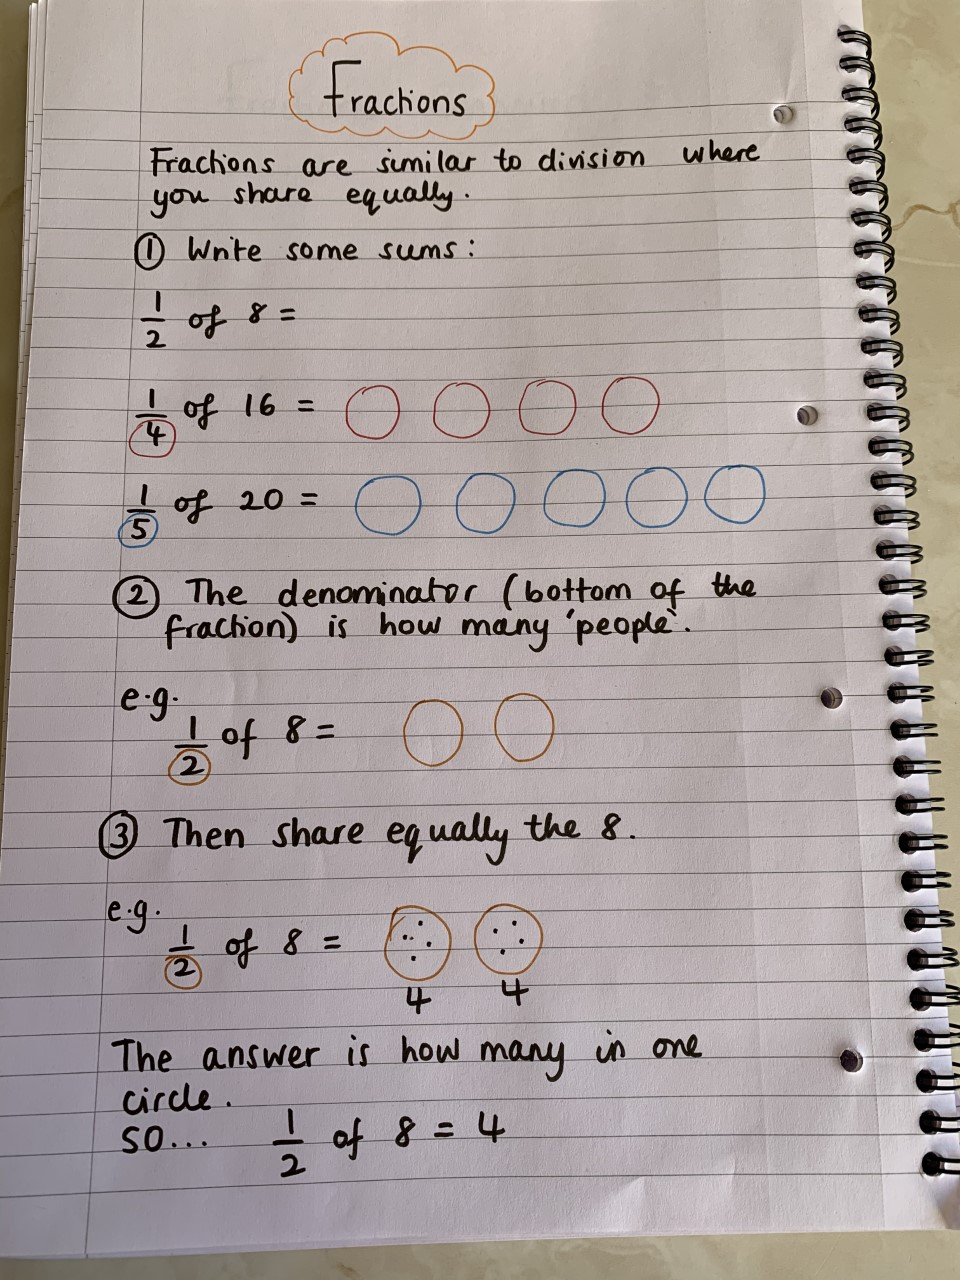 Fractions
Fractions are similar to division where
you share equally.
① Write some sums:
1/2 of 8 =
1/4 of 16 =
1/5 of 20 =
② The denominator (bottom of the
fraction) is how many 'people'.
e.g.
1/2 of 8 =
③ Then share equally the 8.
e.g.
1/2 of 8 =
4 4
The answer is how many in one
circle.
SO... 1/2 of 8 = 4